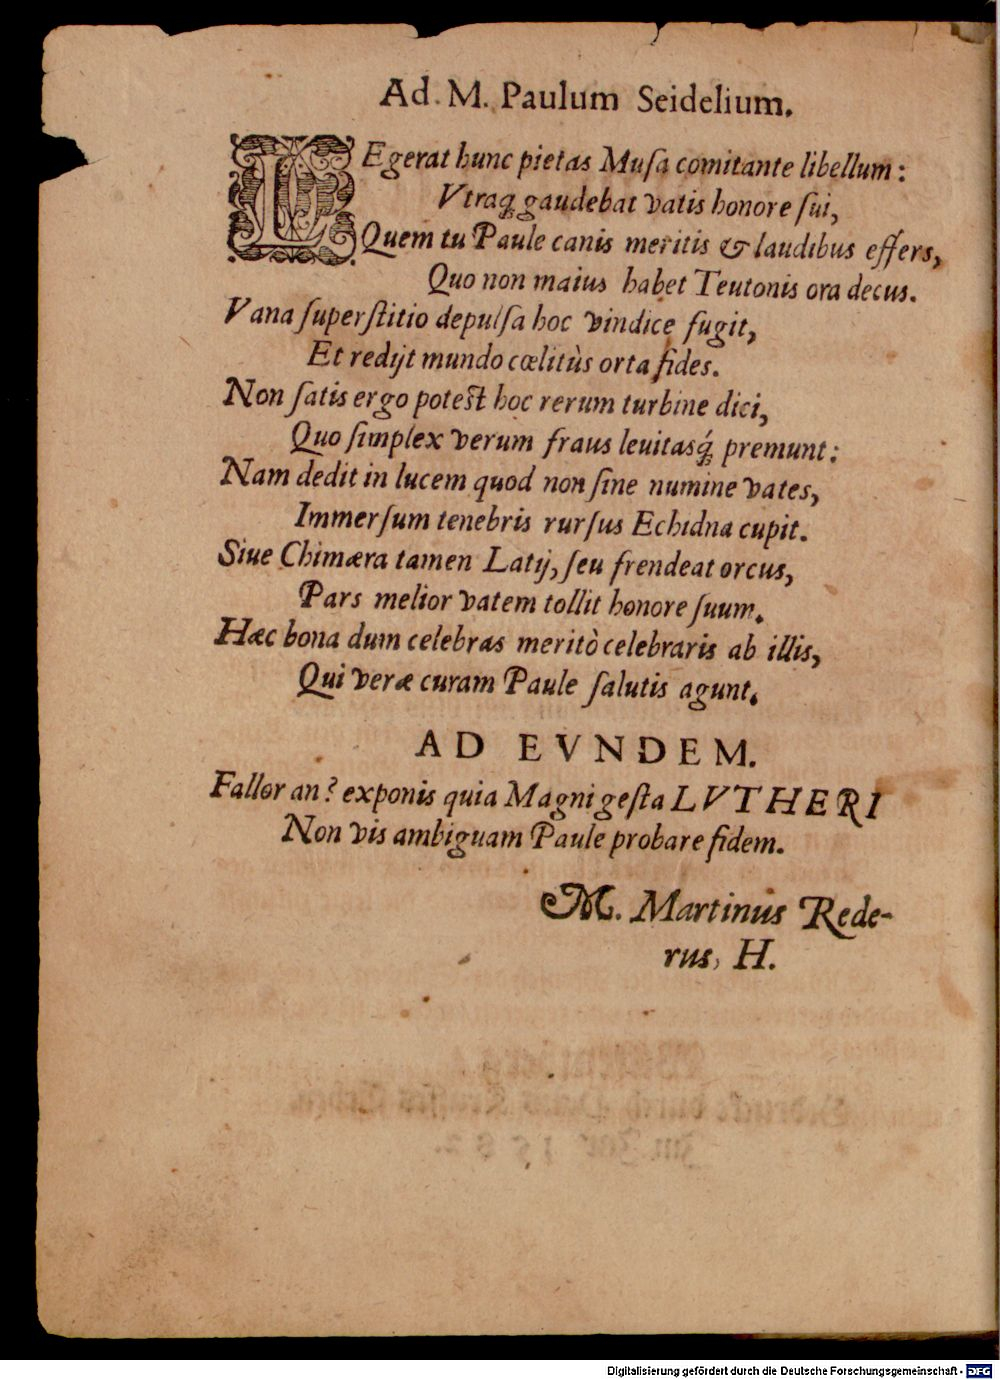 Ad. M. Paulum Seidelium.
LEgerat hunc pietas Muſa comitante libellum:
Vtraq́ꝫ gaudebat vatis honore ſui,
Quem tu Paule canis meritis & laudibus effers,
Quo non maius habet Teutonis ora decus.
Vana ſuperſtitio depulſa hoc vindice fugit,
Et redijt mundo cœlitùs orta fides.
Non ſatis ergo poteſt hoc rerum turbine dici,
Quo ſimplex verum fraus leuitasq́ꝫ premunt:
Nam dedit in lucem quod non ſine numine vates,
Immerſum tenebris rurſus Echidna cupit.
Siue Chimæra tamen Latij, ſeu frendeat orcus,
Pars melior vatem tollit honore ſuum.
Hæc bona dum celebras meritò celebraris ab illis,
Qui veræ curam Paule ſalutis agunt.
AD EVNDEM.
Fallor an? exponis quia Magni geſta LVTHERI
Non vis ambiguam Paule probare fidem.
M. Martinus Rede-
rus, H.
Digitalisierung gefördert durch die Deutsche Forschungsgemeinschaft - DFG